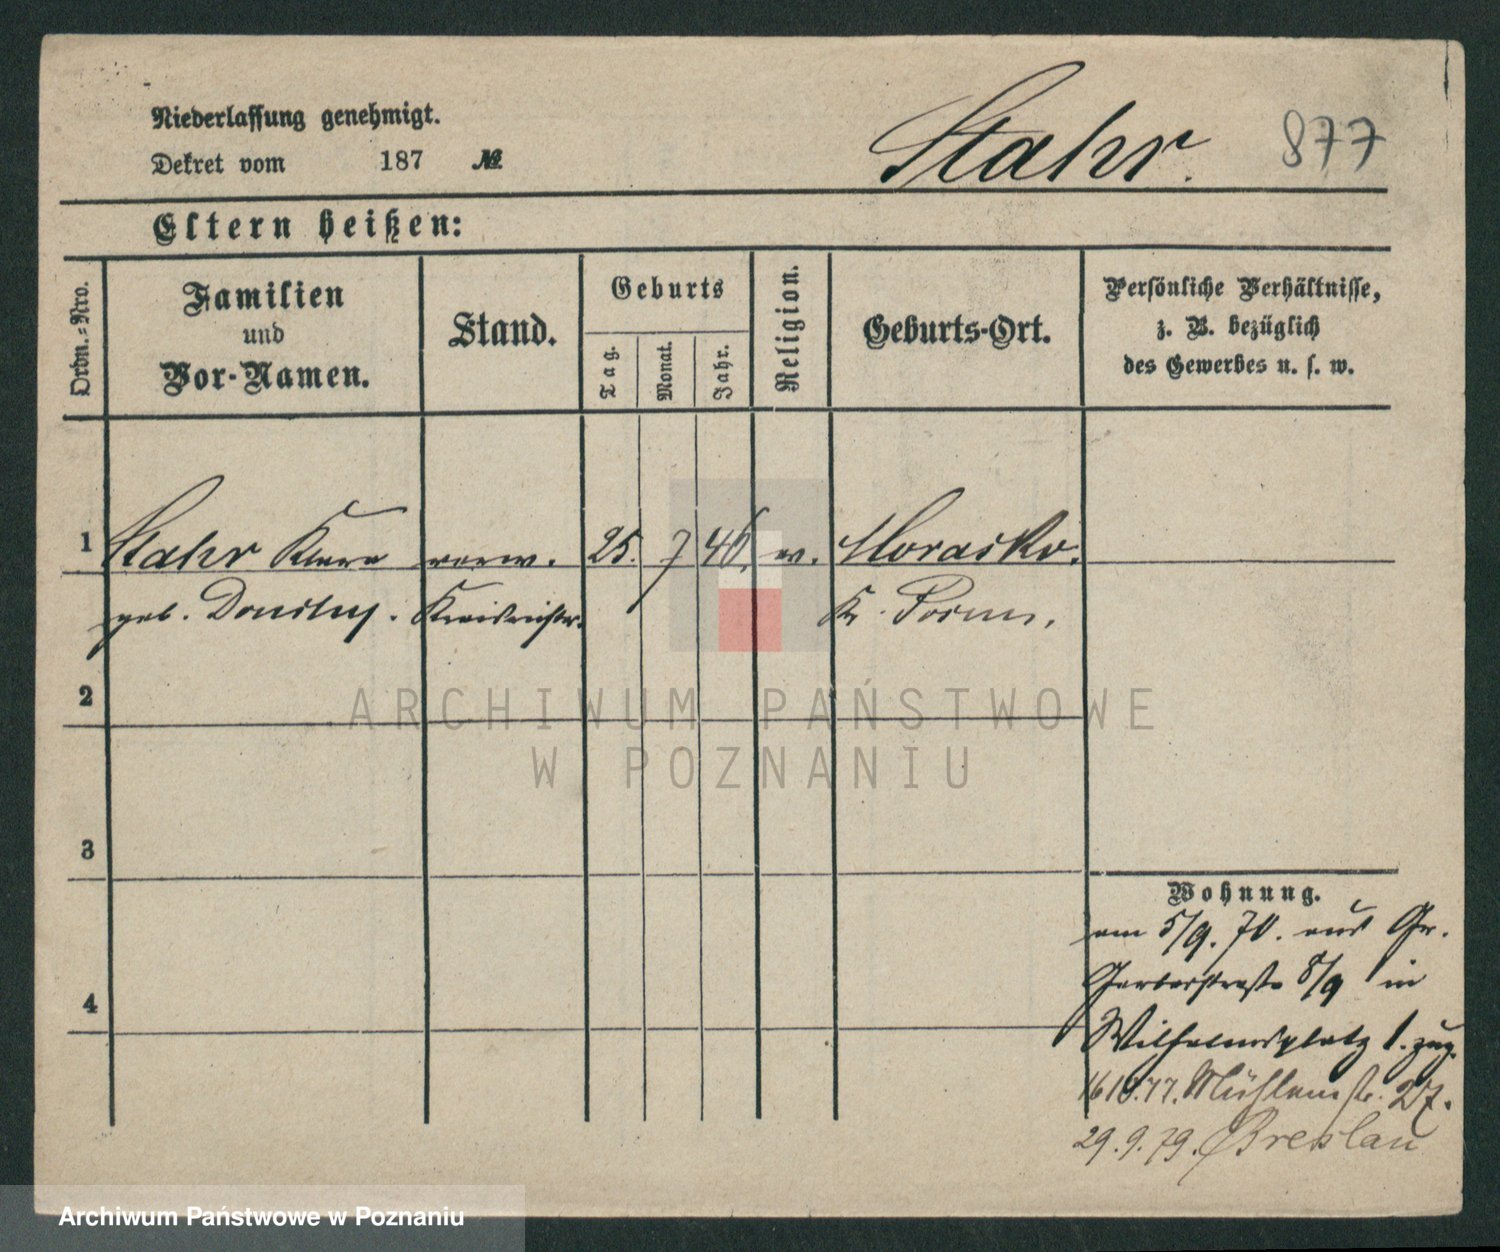 Niederlassung genehmigt.
Dekret vom 187 №
Stahr. 877
Eltern heißen:
Ordn.-Nro.
Familien
und
Vor-Namen.
Stand.
Geburts
Tag.
Monat.
Jahr.
Religion.
Geburts-Ort.
Persönliche Verhältnisse,
z. B. bezüglich
des Gewerbes u. s. w.
1 Stahr Klara verw. 25. 7 46. ev.
geb. Kreisrichter.
Kr. Posen.
2
3
4
Wohnung.
am 5/9. aus Gr.
Gerberstraße 8/9 in
Wilhelmsplatz 1. zug.
Mühlenstr. 27.
29.9.79. Breslau
ARCHIWUM PAŃSTWOWE
W POZNANIU
Archiwum Państwowe w Poznaniu